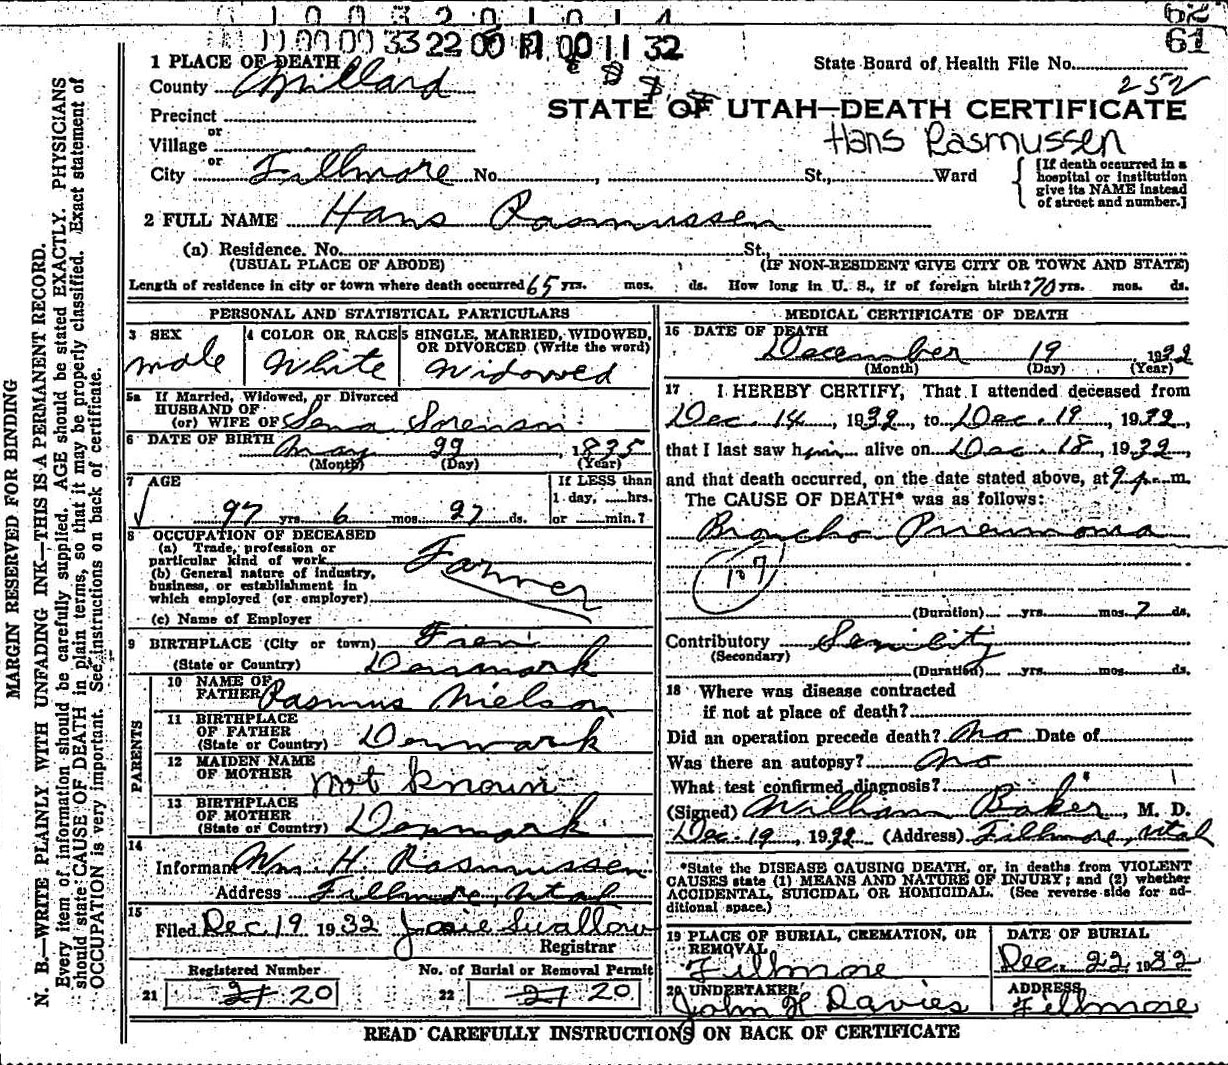 62
61
1 PLACE OF DEATH
State Board of Health File No.
County Millard
252
STATE OF UTAH—DEATH CERTIFICATE
Precinct
or
Village
Hans Rasmussen
or
City Fillmore No. , St., Ward
[If death occurred in a hospital or institution give its NAME instead of street and number.]
2 FULL NAME Hans Rasmussen
(a) Residence. No. St.,
(USUAL PLACE OF ABODE) (IF NON-RESIDENT GIVE CITY OR TOWN AND STATE)
Length of residence in city or town where death occurred 65 yrs. mos. ds. How long in U. S., if of foreign birth? 70 yrs. mos. ds.
PERSONAL AND STATISTICAL PARTICULARS
3 SEX
male
4 COLOR OR RACE
White
5 SINGLE, MARRIED, WIDOWED, OR DIVORCED (Write the word)
Widowed
5a If Married, Widowed, or Divorced
HUSBAND OF
(or) WIFE OF Sena Sorenson
6 DATE OF BIRTH May 22 1835
(Month) (Day) (Year)
7 AGE
97 yrs. 6 mos. 27 ds.
If LESS than
1 day, hrs.
or min.?
8 OCCUPATION OF DECEASED
(a) Trade, profession or
particular kind of work
Farmer
(b) General nature of industry,
business, or establishment in
which employed (or employer)
(c) Name of Employer
9 BIRTHPLACE (City or town)
(State or Country) Denmark
PARENTS
10 NAME OF
FATHER Rasmus Nielson
11 BIRTHPLACE
OF FATHER
(State or Country) Denmark
12 MAIDEN NAME
OF MOTHER Not Known
13 BIRTHPLACE
OF MOTHER
(State or Country) Denmark
14
Informant Wm. H. Rasmussen
Address Fillmore, Utah
15
Filed Dec 19 1932 Josie Swallow
Registrar
Registered Number No. of Burial or Removal Permit
21 21 20 22 21 20
MEDICAL CERTIFICATE OF DEATH
16 DATE OF DEATH
December 19 1932
(Month) (Day) (Year)
17 I HEREBY CERTIFY, That I attended deceased from
Dec. 14, 1932, to Dec. 19, 1932,
that I last saw him alive on Dec. 18, 1932,
and that death occurred, on the date stated above, at 9 p. m.
The CAUSE OF DEATH* was as follows:
Broncho Pneumonia
107
(Duration) yrs. mos. 7 ds.
Contributory Senility
(Secondary)
(Duration) yrs. mos. ds.
18 Where was disease contracted
if not at place of death?
Did an operation precede death? No Date of
Was there an autopsy? No
What test confirmed diagnosis?
(Signed) William Baker, M. D.
Dec. 19, 1932 (Address) Fillmore, Utah
*State the DISEASE CAUSING DEATH, or, in deaths from VIOLENT
CAUSES state (1) MEANS AND NATURE OF INJURY; and (2) whether
ACCIDENTAL, SUICIDAL OR HOMICIDAL. (See reverse side for ad-
ditional space.)
19 PLACE OF BURIAL, CREMATION, OR
REMOVAL
Fillmore
DATE OF BURIAL
Dec. 22, 1932
20 UNDERTAKER
John H Davies
ADDRESS
Fillmore
READ CAREFULLY INSTRUCTIONS ON BACK OF CERTIFICATE
MARGIN RESERVED FOR BINDING
N. B.—WRITE PLAINLY WITH UNFADING INK—THIS IS A PERMANENT RECORD.
Every item of information should be carefully supplied. AGE should be stated EXACTLY. PHYSICIANS
should state CAUSE OF DEATH in plain terms, so that it may be properly classified. Exact statement of
OCCUPATION is very important. See instructions on back of certificate.